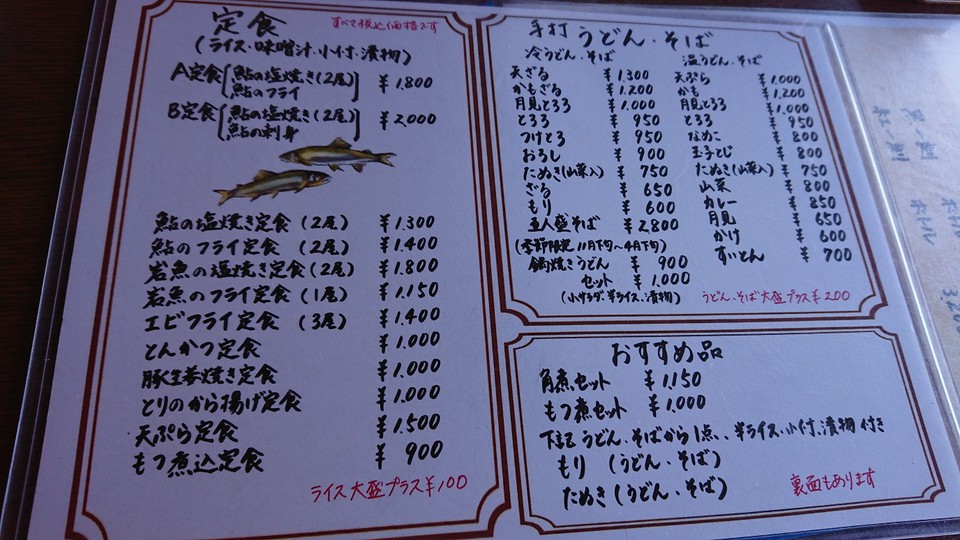 定食
すべて税込価格です
(ライス・味噌汁・小付・漬物)
A定食 鮎の塩焼き(2尾) 鮎のフライ ¥1.800
B定食 鮎の塩焼き(2尾) 鮎の刺身 ¥2,000
鮎の塩焼き定食(2尾) ¥1.300
鮎のフライ定食(2尾) ¥1.400
岩魚の塩焼き定食(2尾) ¥1.800
岩魚のフライ定食(1尾) ¥1.150
エビフライ定食(3尾) ¥1.400
とんかつ定食 ¥1.000
豚生姜焼き定食 ¥1.000
とりのから揚げ定食 ¥1.000
天ぷら定食 ¥1.500
もつ煮込定食 ¥900
ライス大盛プラス¥100
手打うどん・そば
冷うどん・そば
天ざる ¥1,300
かもざる ¥1.200
月見とろろ ¥1.000
とろろ ¥950
つけとろ ¥950
おろし ¥900
たぬき(山菜入) ¥750
ざる ¥650
もり ¥600
五人盛そば ¥2800
(季節限定 11月下旬〜4月下旬)
鍋焼きうどん ¥900
セット ¥1.000
(小サラダ・半ライス・漬物)
温うどん・そば
天ぷら ¥1,000
かも ¥1,200
月見とろろ ¥1,000
とろろ ¥950
なめこ ¥800
玉子とじ ¥800
たぬき(山菜入) ¥750
山菜 ¥800
カレー ¥850
月見 ¥650
かけ ¥600
すいとん ¥700
うどん・そば大盛プラス¥200
おすすめ品
角煮セット ¥1,150
もつ煮セット ¥1.000
下記うどん・そばから1点、半ライス・小付・漬物付き
もり (うどん・そば)
たぬき(うどん・そば)
裏面もあります